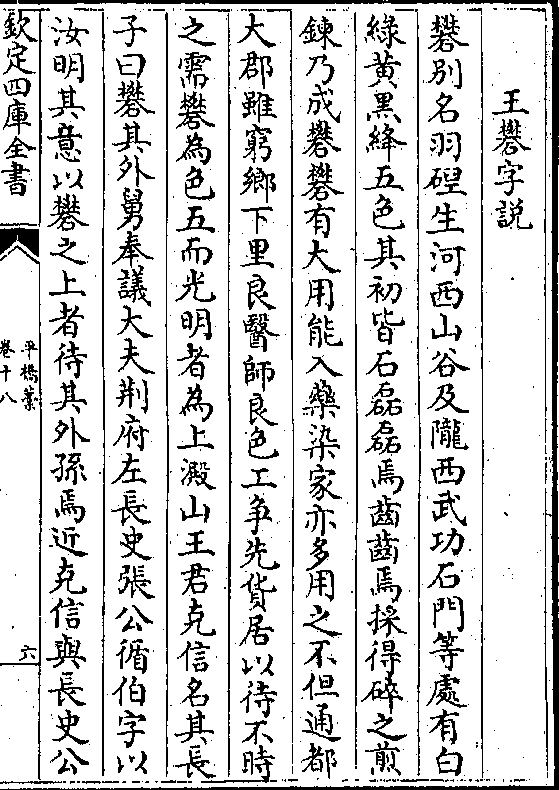 王礬字説
礬别名羽䂠生河西山谷及隴西武功石門等處有白
綠黄黒絳五色其初皆石磊磊焉齒齒焉採得碎之煎
鍊乃成礬礬有大用能入藥染家亦多用之不但通都
大郡雖窮鄉下里良醫師良色工争先貨居以待不時
之需礬為色五而光明者為上澱山王君克信名其長
子曰礬其外舅奉議大夫荆府左長史張公循伯字以
汝明其意以礬之上者待其外孫焉近克信與長史公
欽定四庫全書
平橋藁
卷十八
六